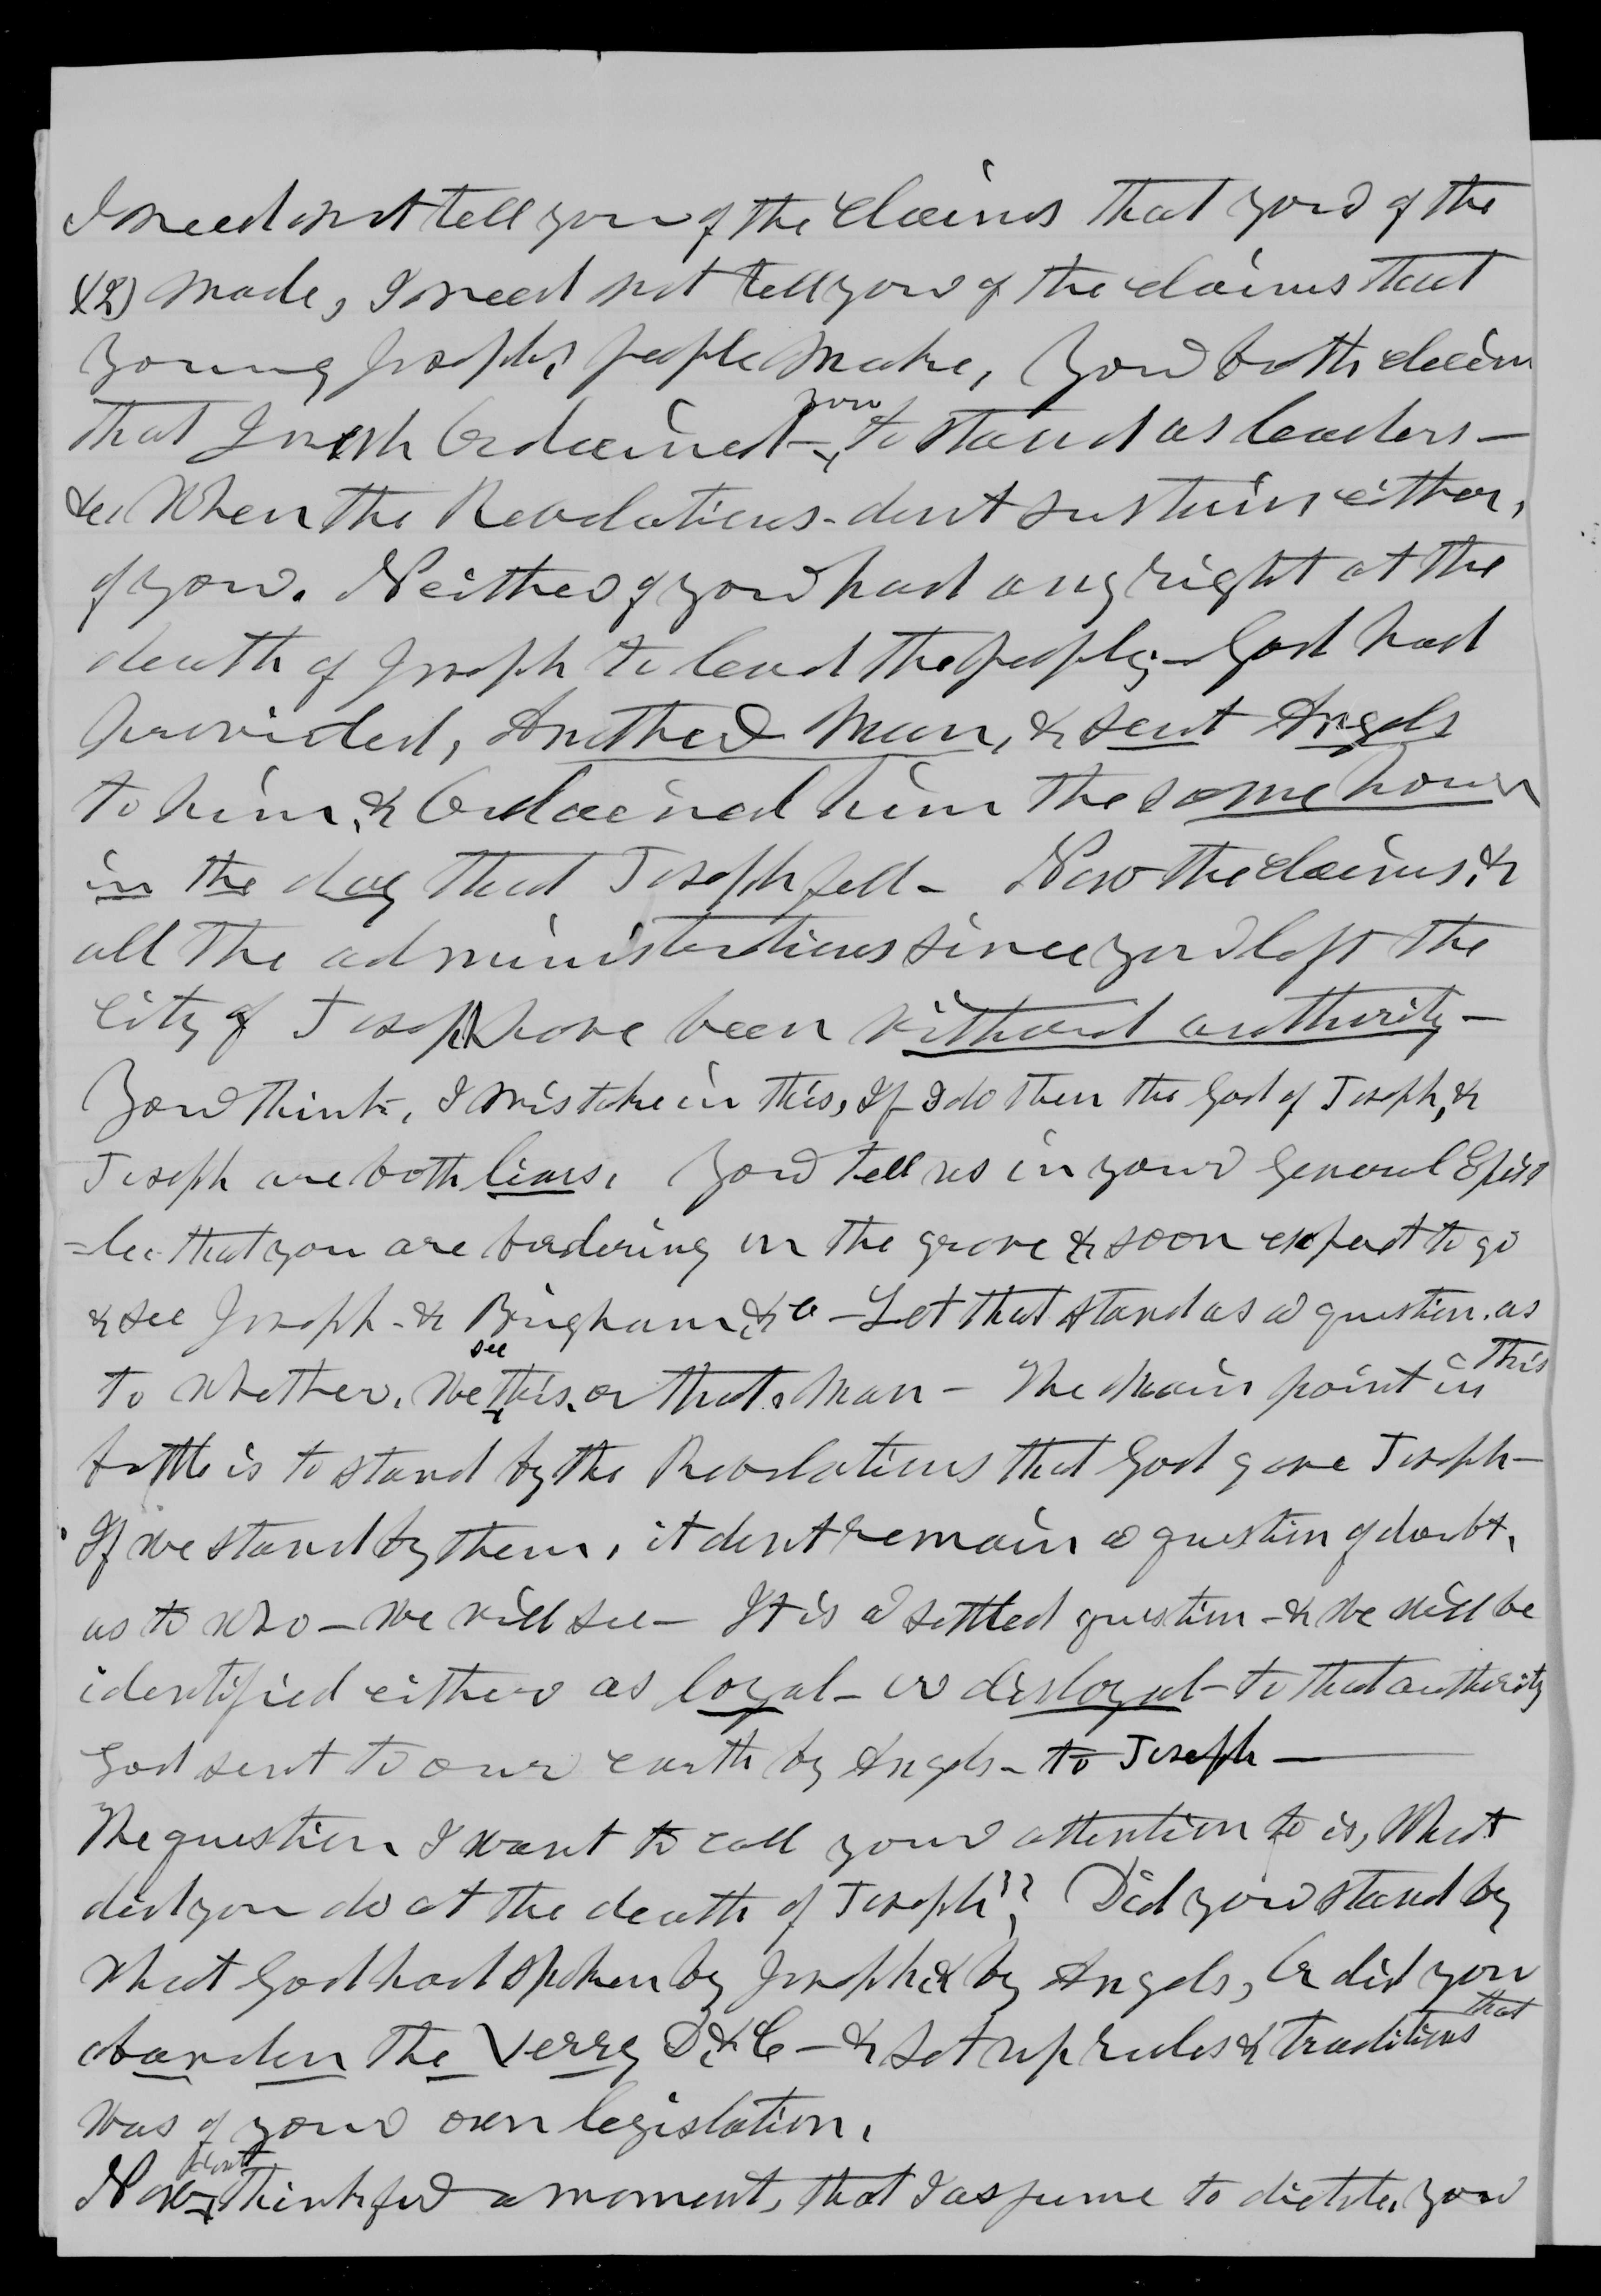 I need not tell you of the claims that you of the
(12) made, I need not tell you of the claims that
Young Josephs people make, You both claim
that Joseph Ordained you to stand as leaders —
&c, When the Revelations dont sustain either,
of you. Neither of you had any right at the
death of Joseph to lead the people; — God had
provided, Another Man, & sent Angels
to him, & Ordained him the same hour
in the day that Joseph fell — Now the claims, &
all the administrations since you left the
City of Joseph have been without authority —
You think, I mistake in this, If I do then the God of Joseph, &
Joseph are both liars, You tell us in your General Epis
=le that you are bordering on the grave & soon expect to go
& see Joseph & Brigham, &c — Let that stand as a question, as
to whether, we see this, or that, Man — The Main point in this
battle is to stand by the Revelations that God gave Joseph —
If we stand by them, it dont remain a question of doubt,
as to who — we will see — It is a settled question — & we will be
identified either as loyal — or disloyal — to that authority
God sent to our earth by Angels — to Joseph —
The question I want to call your attention to is, What
did you do at the death of Joseph?? Did you stand by
what God had spoken by Joseph & by Angels, Or did you
abandon the Verry D&C — & set up rules & traditions that
was of your own legislation,
Now, dont think for a moment, that I assume to dictate, you